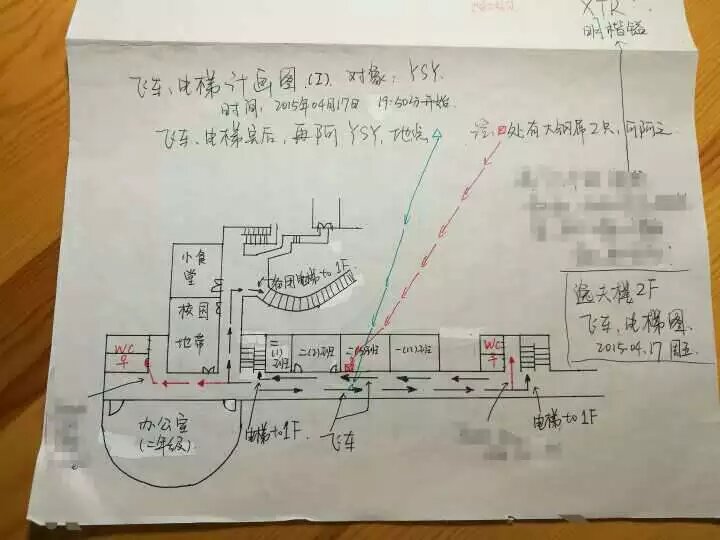 XTR
飞车、电梯计画图.(I). 对象: YSY.
时间: 2015年04月17日 19:50分开始.
飞车、电梯具后, 再阿 YSY, 地点
处有大钢屏2只, 可阿之.
小食堂
校园地带
右闭电梯to 1F
逸夫楼2F
飞车、电梯图.
2015.04.17 周五
WC
二(1)班
二(2)班
一(1)班
WC
办公室
(二年级)
电梯to1F
飞车
电梯to1F